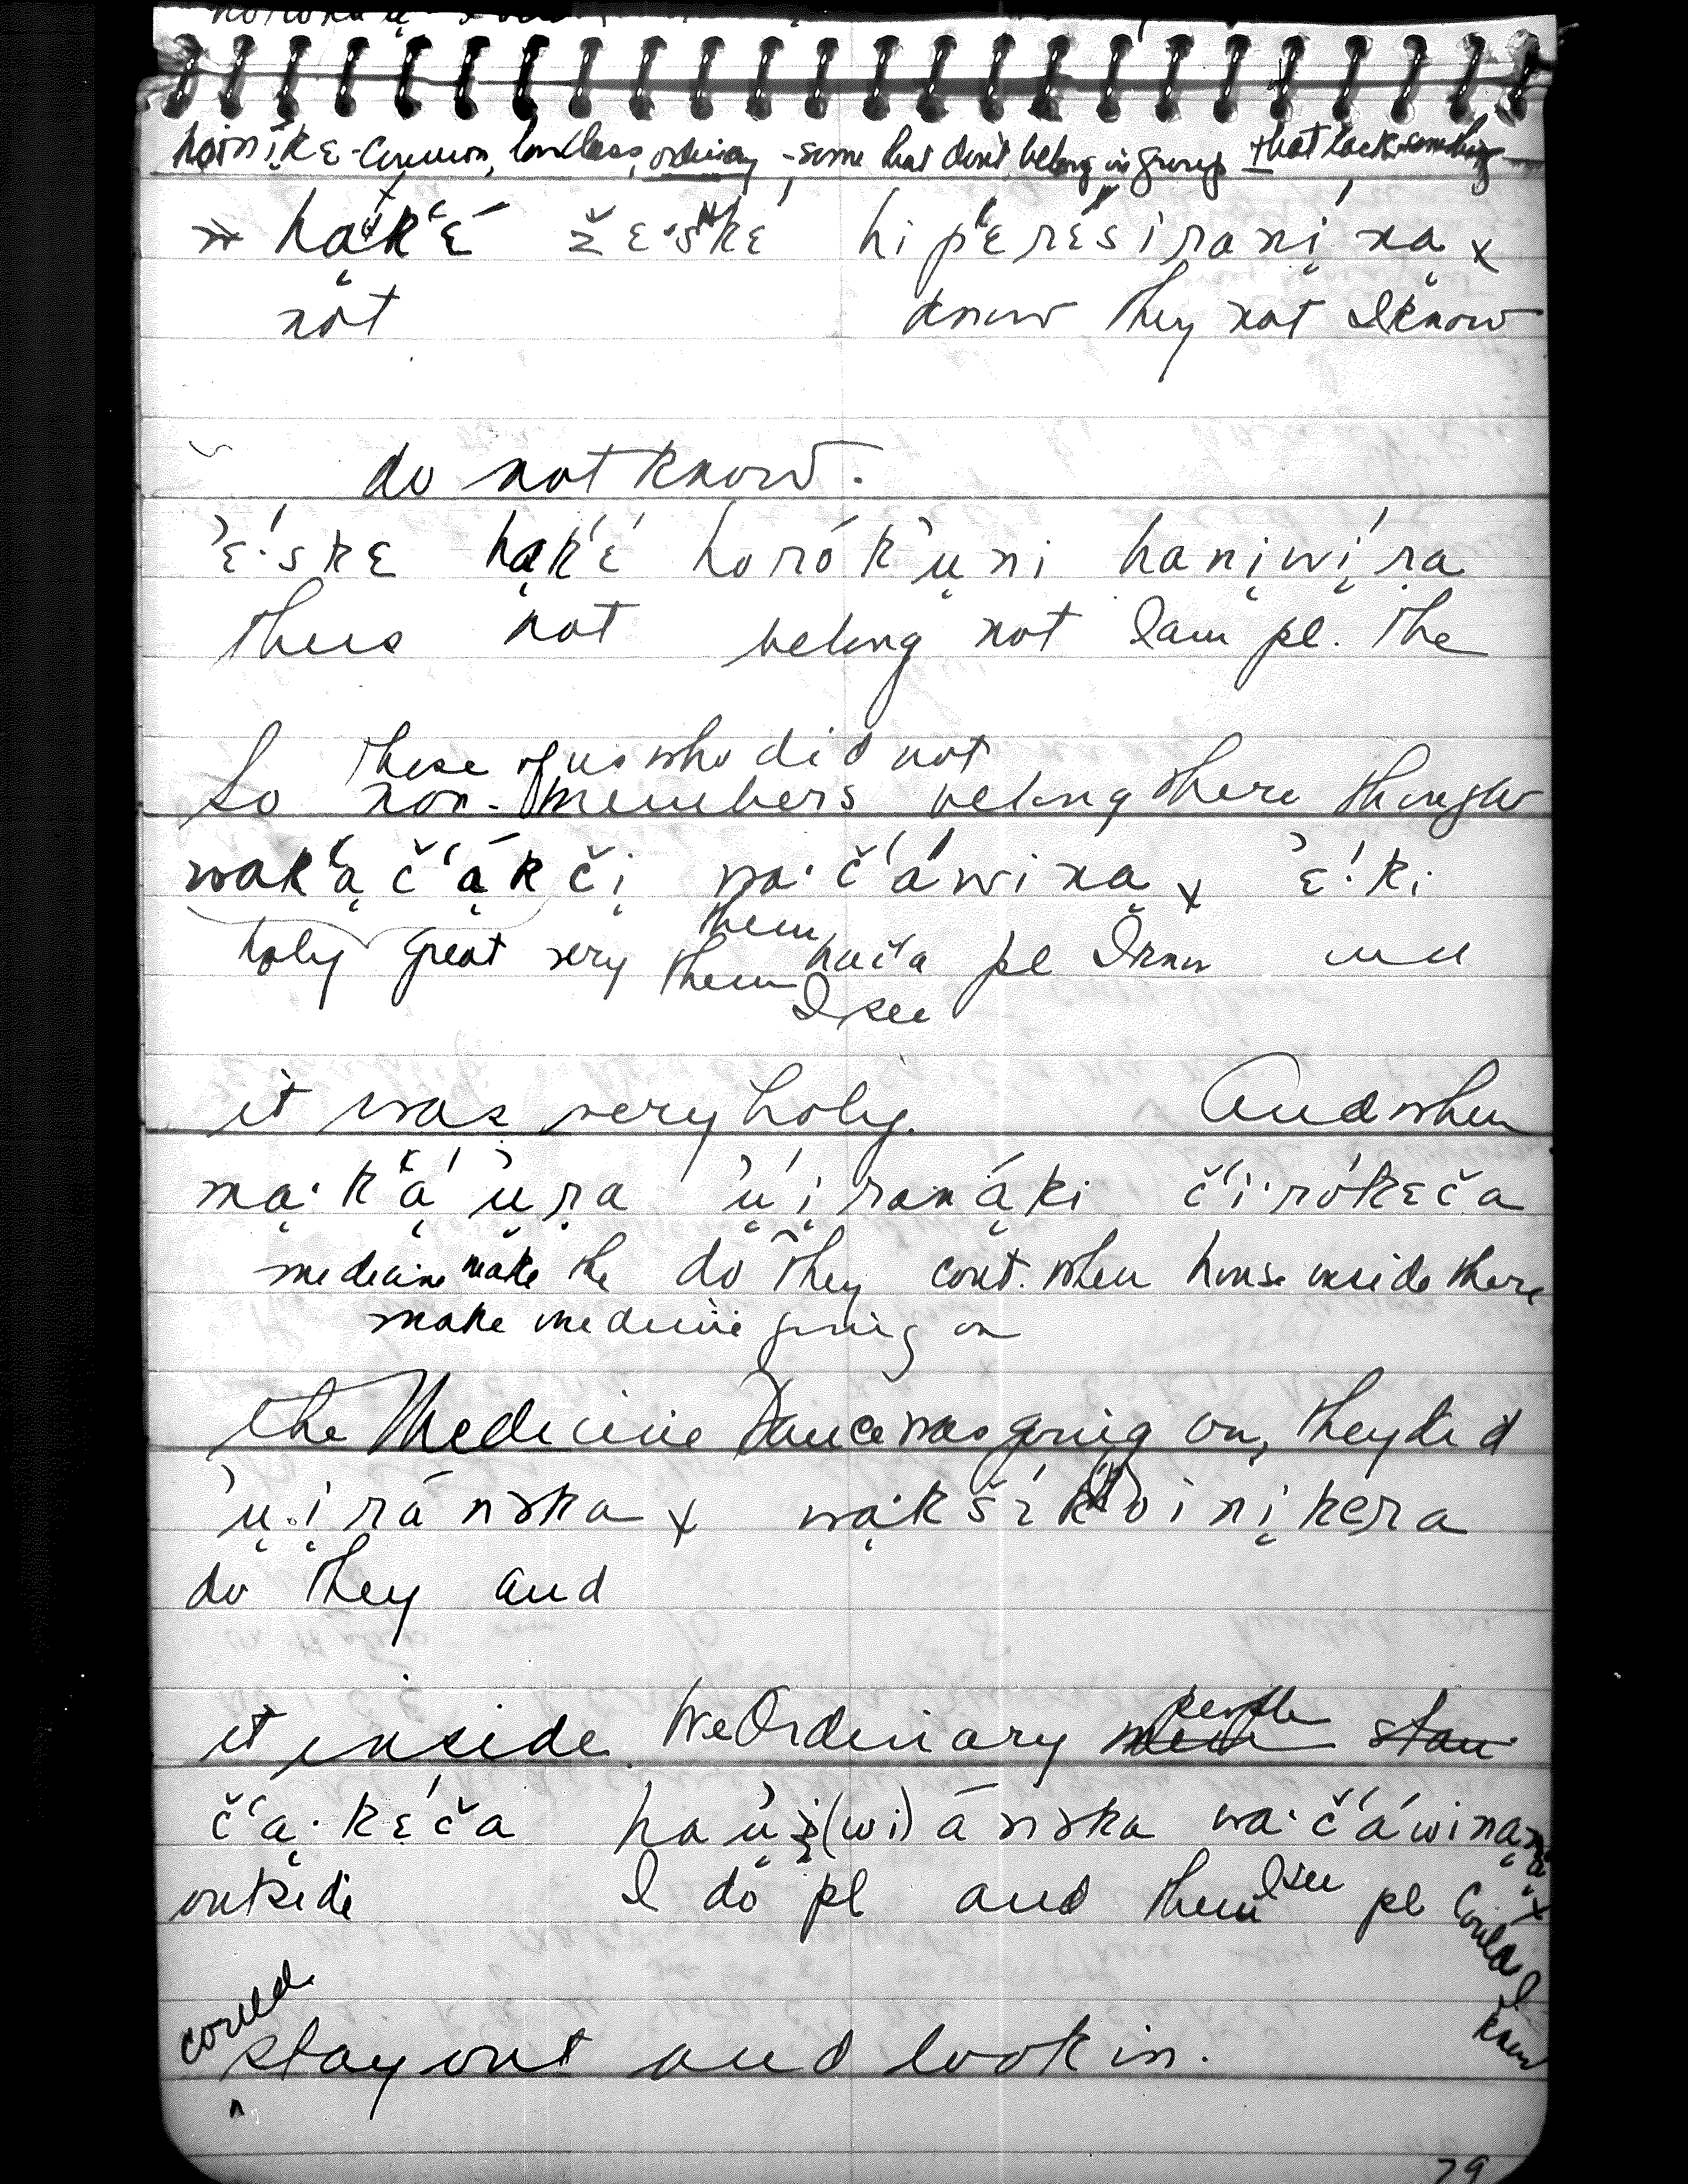 hoinįkɛ - Common, landless, ordinary - some that don't belong in group that lack something
hąkʽɛ́ žɛ·skɛ́ hipʽɛrɛ́siranįną x
not know they not I know
do not know.
ʼɛ́·skɛ hąkʽɛ́ horókʼųni hanįwį́ra
thus not belong not I am pl. the
those of us who did not
So non-members belong there thought
wakʽąčʽą́kčį wa·čʽáwiną x ʼɛ́·ki
them
holy great very them hačʽa pl I know and
I see
it was very holy. And when
mą·kʽą́ʼųra ʼųįraną́ki čʽi·rókɛča
medicine make the do they cont. when house inside there
make medicine going on
the Medicine Dance was going on, they did
ʼų·įránʌka x wąkšíkoinįkera
do they and
it inside. We Ordinary people
čʽą·kɛ́ča haʼų́(wi)ánʌka wa·čʽáwinąną x
outside I do pl and them I see pl Could I know
could
stay out and look in.
79